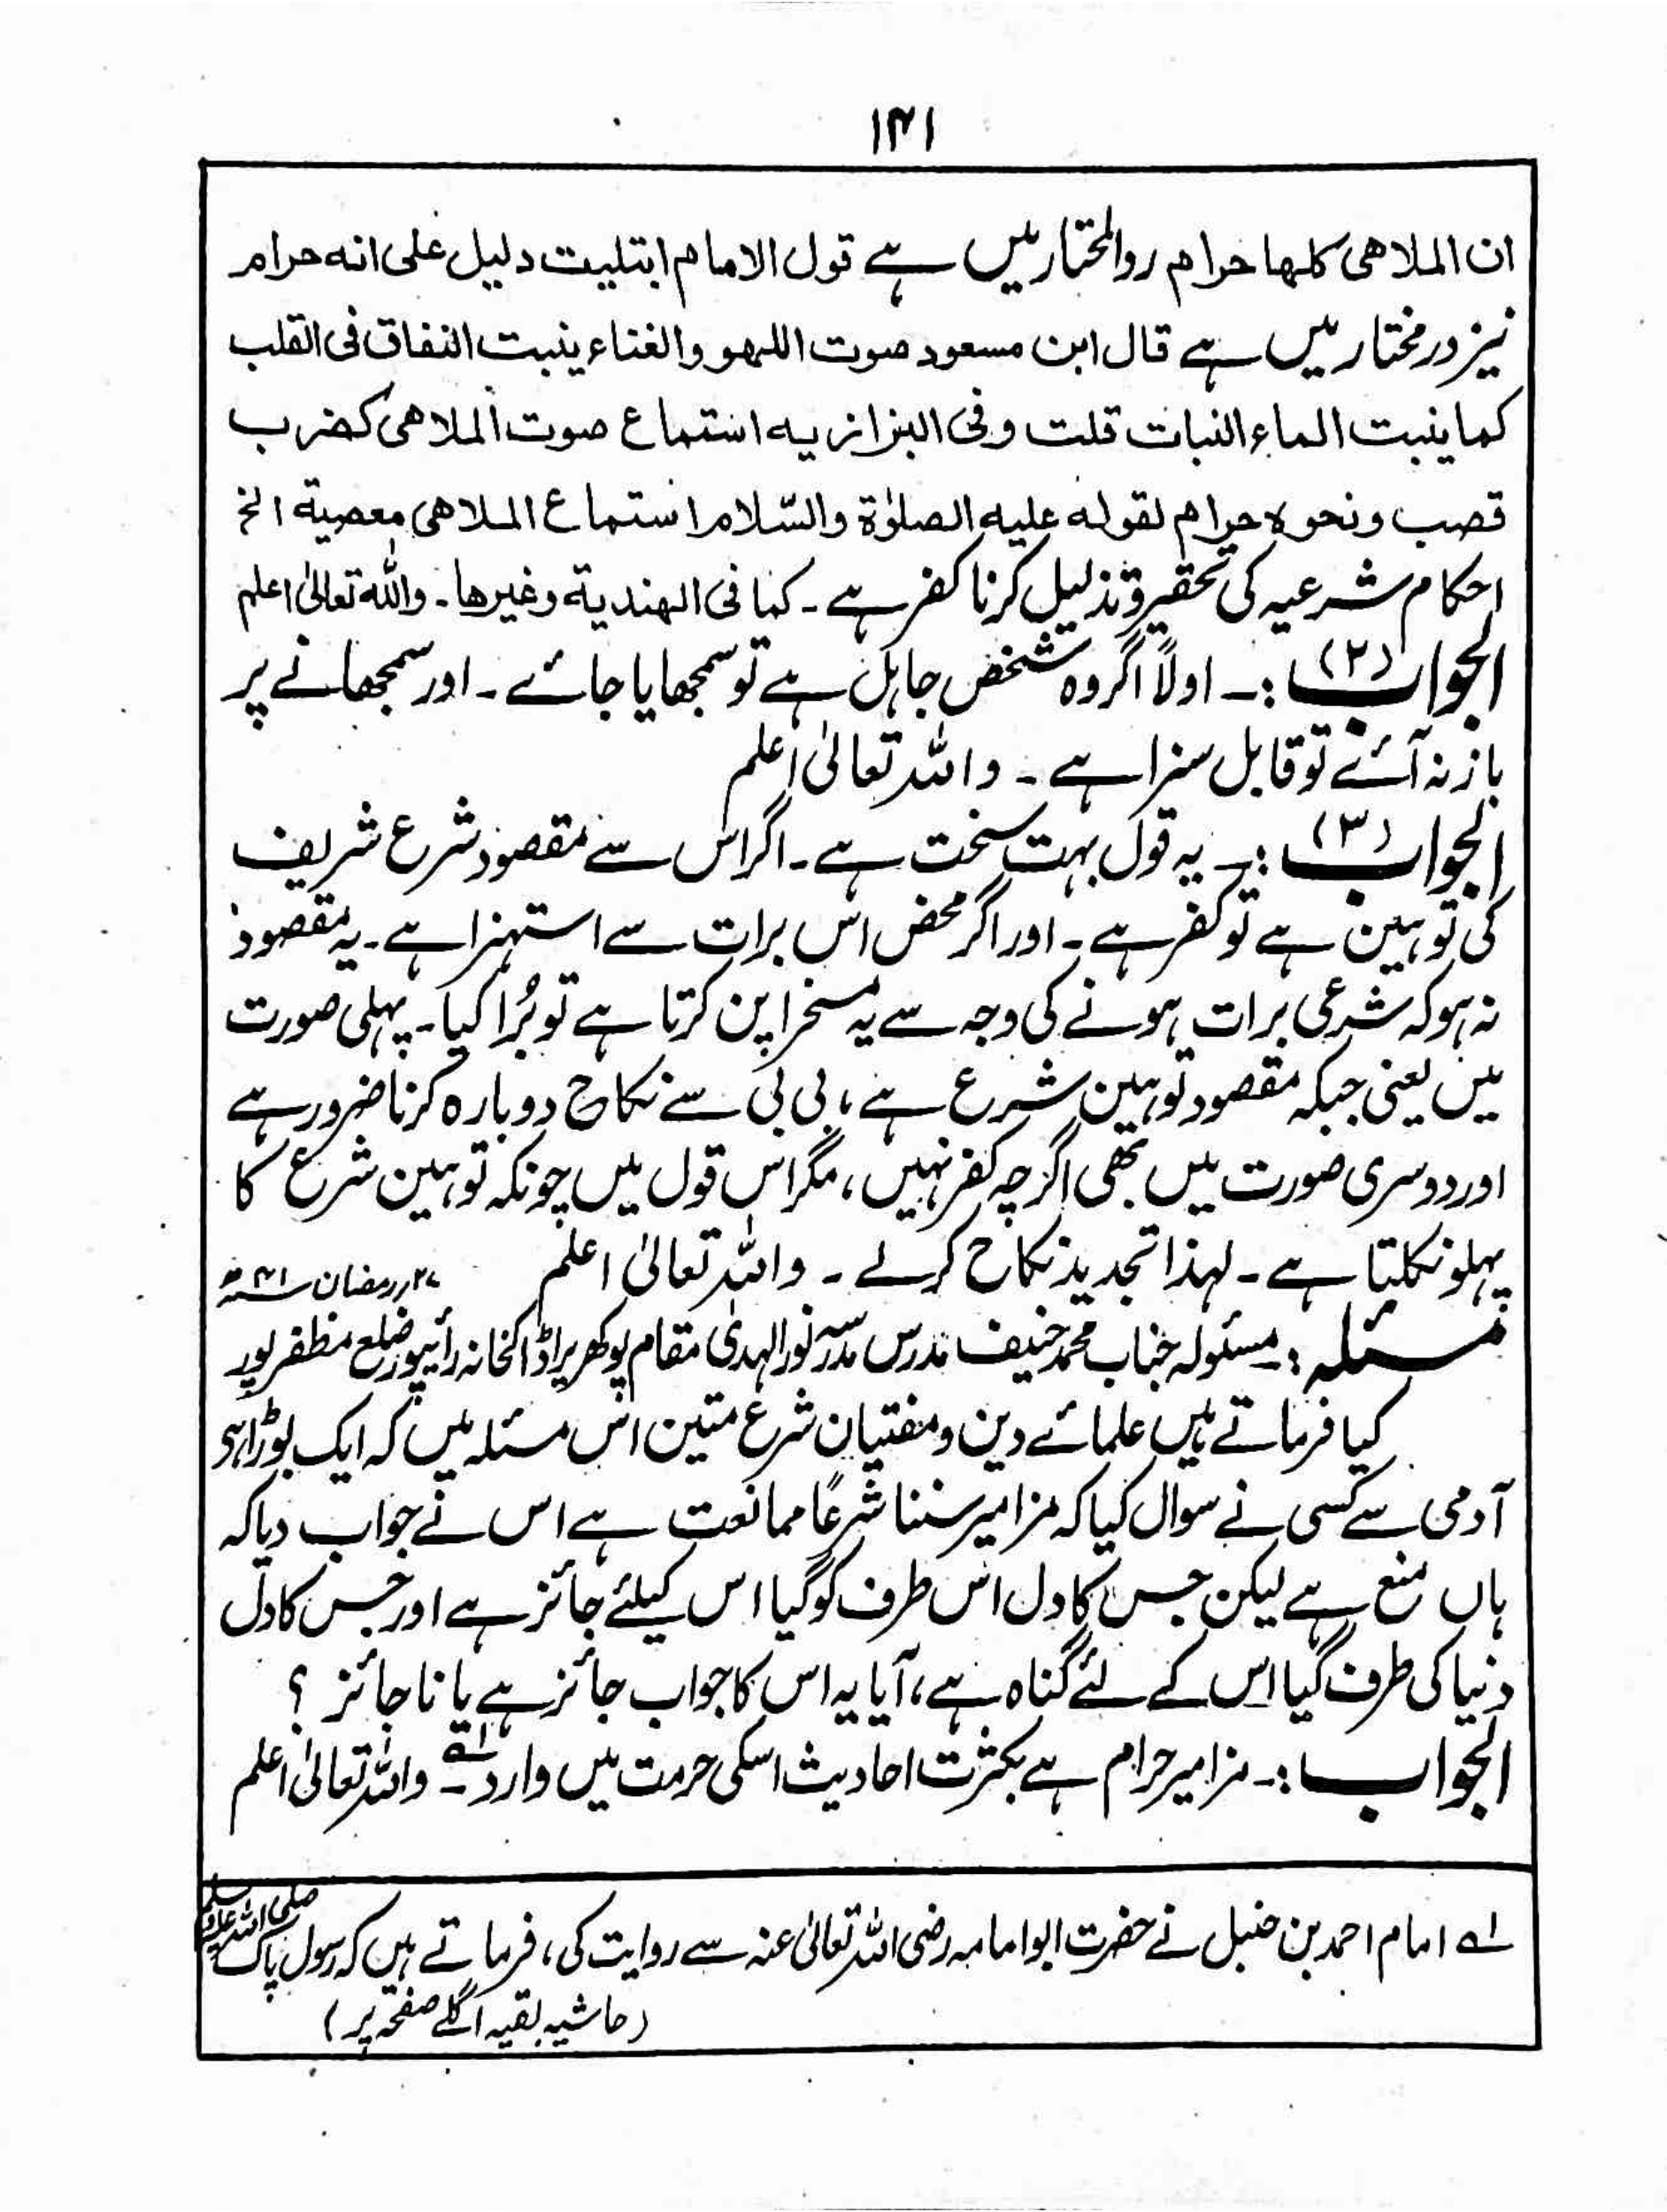 ۱۴۱
ان الملاهی کلہا حرام ردالمحتار میں ہے قول الامام ابتلیت دلیل علی انه حرام
نیز درمختار میں ہے قال ابن مسعود صوت اللہو والغناء ینبت النفاق فی القلب
کما ینبت الماء النبات قلت وفی البزازیه استماع صوت الملاهی کضرب
قصب ونحوه حرام لقوله علیه الصلوٰة والسّلام استماع الملاهی معصیة الخ
احکام شرعیہ کی تحقیر و تذلیل کرنا کفر ہے ۔ کما فی الہندیة وغیرها ۔ واللّٰه تعالیٰ اعلم
الجواب (۲) :۔ اولاً اگر وہ شخص جاہل ہے تو سمجھایا جائے ۔ اور سمجھانے پر
باز نہ آئے تو قابل سزا ہے ۔ واللہ تعالیٰ اعلم
الجواب (۳) :۔ یہ قول بہت سخت ہے ۔ اگر اس سے مقصود شرع شریف
کی توہین ہے تو کفر ہے ۔ اور اگر محض اس برات سے استہزا ہے ۔ یہ مقصود
نہ ہو کہ شرعی برات ہونے کی وجہ سے یہ مسخراپن کرتا ہے تو بُرا کیا ۔ پہلی صورت
میں یعنی جبکہ مقصود توہین شرع ہے ، بی بی سے نکاح دوبارہ کرنا ضرور ہے
اور دوسری صورت میں بھی اگرچہ کفر نہیں ، مگر اس قول میں چونکہ توہین شرع کا
پہلو نکلتا ہے ۔ لہذا تجدید نکاح کرلے ۔ واللہ تعالیٰ اعلم رمضان
مسئلہ :۔ مسئولہ جناب محمد حنیف مدرس مدرسہ نورالہدیٰ مقام پوکھریرا ڈاکخانہ رائیپور ضلع مظفرپور
کیا فرماتے ہیں علمائے دین ومفتیان شرع متین اس مسئلہ میں کہ ایک
آدمی سے کسی نے سوال کیا کہ مزامیر سننا شرعًا ممانعت ہے اس نے جواب دیا کہ
ہاں منع ہے لیکن جس کا دل اس طرف کو گیا اس کیلئے جائز ہے اور جس کا دل
دنیا کی طرف گیا اس کے لئے گناہ ہے ، آیا یہ اس کا جواب جائز ہے یا ناجائز ؟
الجواب :۔ مزامیر حرام ہے بکثرت احادیث اسکی حرمت میں وارد ۱ے ۔ واللہ تعالیٰ اعلم
۱ے امام احمد بن حنبل نے حضرت ابوامامہ رضی اللہ تعالیٰ عنہ سے روایت کی ، فرماتے ہیں کہ رسول پاک صلی اللہ علیہ وسلم
(حاشیہ بقیہ اگلے صفحہ پر)